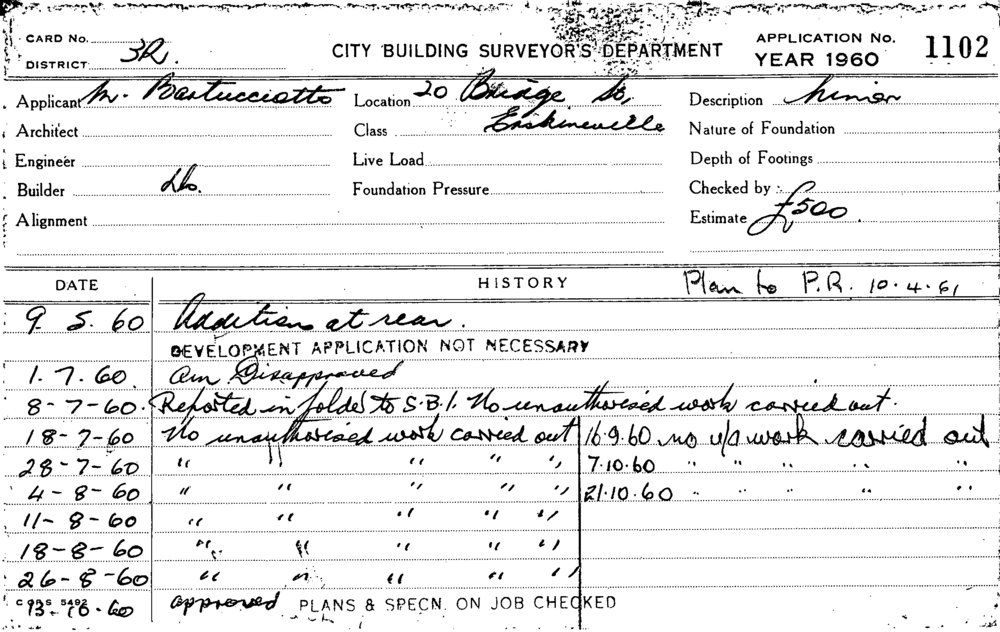 CARD No.
DISTRICT 3R.
CITY BUILDING SURVEYOR'S DEPARTMENT
APPLICATION No. 1102
YEAR 1960
Applicant M. Bartucciotto Location 20 Bridge St, Description Minor
Architect Class Erskineville Nature of Foundation
Engineer Live Load Depth of Footings
Builder Do. Foundation Pressure Checked by
Alignment Estimate £500.
DATE HISTORY Plan to P.R. 10.4.61
9. 5. 60 Addition at rear.
DEVELOPMENT APPLICATION NOT NECESSARY
1.7.60. Disapproved
8-7-60. Reported in folder to S.B.I. No unauthorised work carried out.
18-7-60 No unauthorised work carried out 16.9.60 no u/a work carried out
28-7-60 " " " " " 7.10.60 " " " " "
4-8-60 " " " " " 21.10.60 " " " " "
11-8-60 " " " " "
18-8-60 " " " " "
26-8-60 " " " " "
.60 approved PLANS & SPECN. ON JOB CHECKED